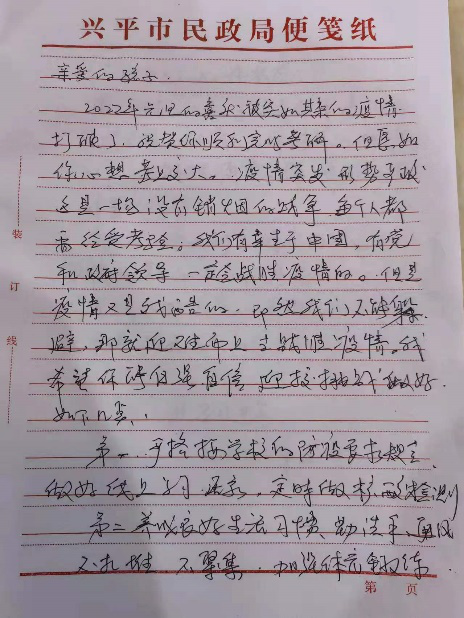 兴平市民政局便笺纸
亲爱的孩子
2022年元旦的喜 被突如其来的疫情
打破了, 你顺利完 考研。但
你心想 大。疫情突发 形势严
这是一场没有销烟的战争, 每个人都
要经受考验。我们有幸生于中国, 有党
和政府领导一定会战胜疫情的。但是
疫情又是 的, 既然我们不能躲
避, 那就迎难而上去战胜疫情。我
希望你 坚强自信 迎接挑战 做好
如下几点:
第一 严格按学校的防疫要求规定
做好线上学习 , 定时做核酸检测
第二 养成良好生活习惯, 勤洗手、通风
不扎堆 不聚集, 加强体育锻炼
装
订
线
第 页